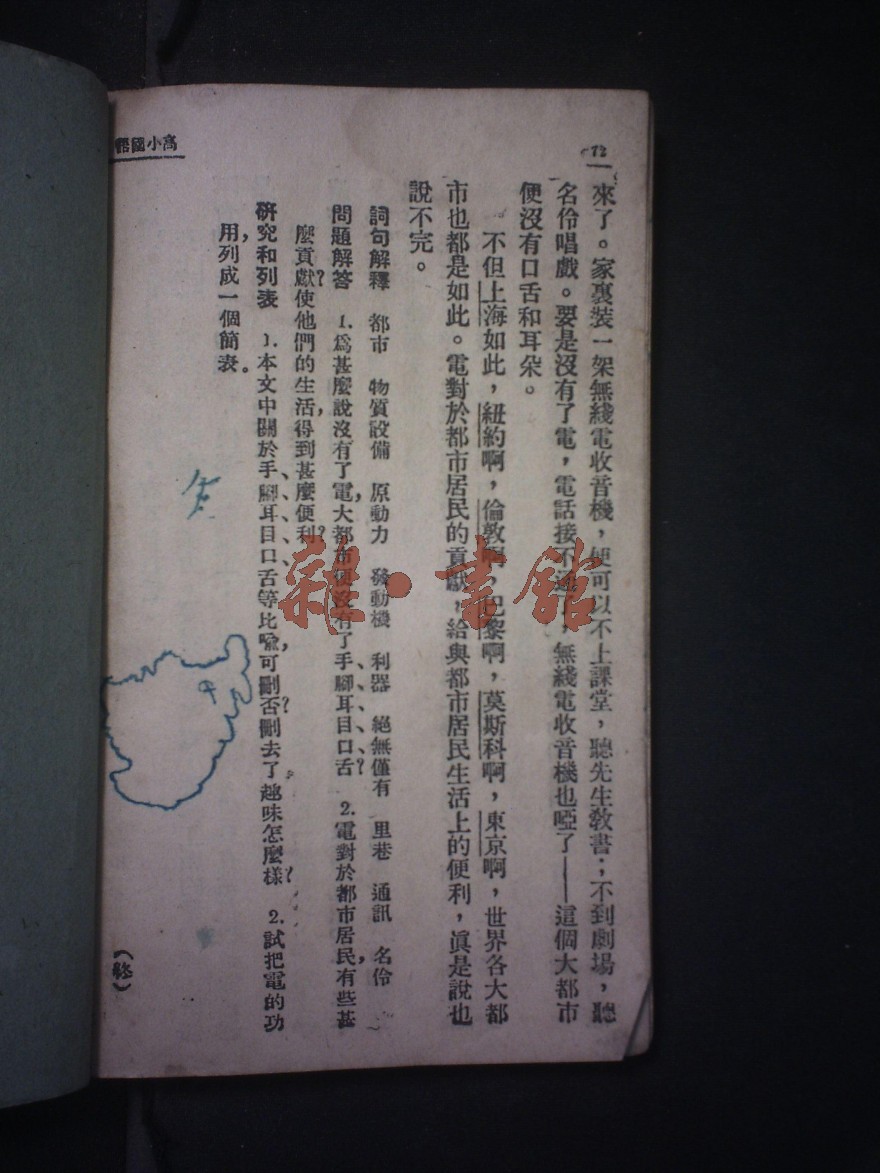 72
高小國語
來了。家裏裝一架無綫電收音機，便可以不上課堂，聽先生敎書；不到劇場，聽
名伶唱戲。要是沒有了電，電話接不通了，無綫電收音機也啞了——這個大都市
便沒有口舌和耳朵。
不但上海如此，紐約啊，倫敦啊，巴黎啊，莫斯科啊，東京啊，世界各大都
市也都是如此。電對於都市居民的貢獻，給與都市居民生活上的便利，眞是說也
說不完。
詞句解釋　都市　物質設備　原動力　發動機　利器　絕無僅有　里巷　通訊　名伶
問題解答　1.爲甚麼說沒有了電，大都市便沒有了手、腳、耳、目、口、舌？　2.電對於都市居民，有些甚
麼貢獻？使他們的生活，得到甚麼便利？
硏究和列表　1.本文中關於手、腳、耳、目、口、舌等比喩，可刪否？刪去了趣味怎麼樣？　2.試把電的功
用，列成一個簡表。
（終）
雜·書館